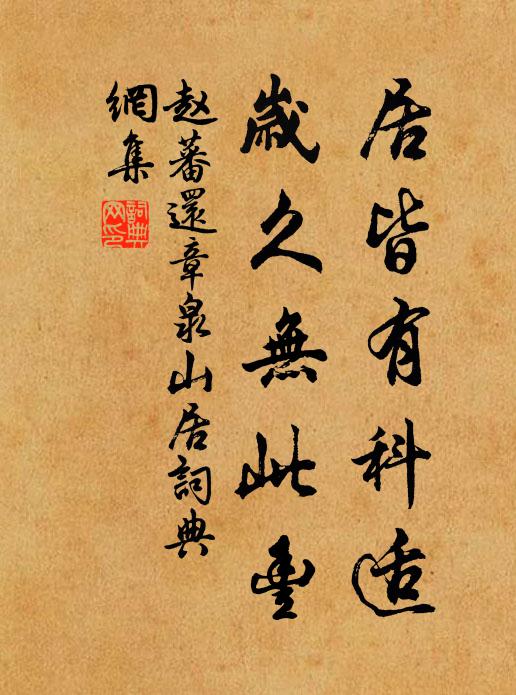 居皆有科适
歲久無此豐
赵蕃還章泉山居詞典
網集
詞典
网印